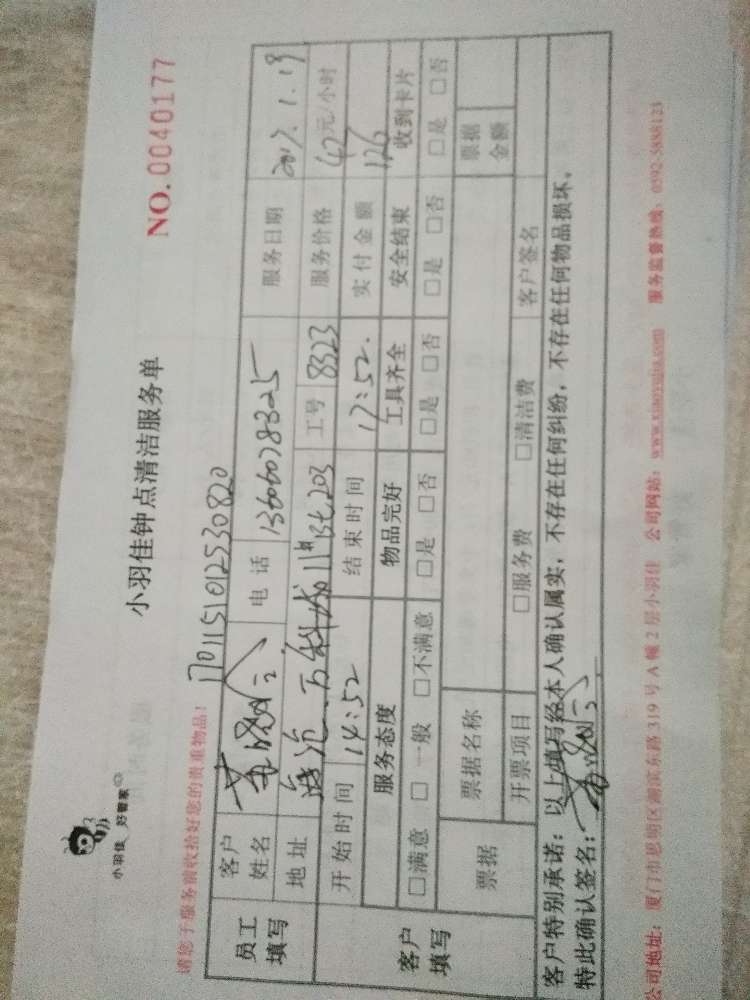 小羽佳 好管家
小羽佳钟点清洁服务单
NO.0040177
请您于服务前收拾好您的贵重物品!
170115101253 0820
员工填写 客户姓名 电话 13606078325 服务日期 2017.1.19
地址 万科 13#203 工号 8323 服务价格 42元/小时
客户填写 开始时间 14:52 结束时间 17:52. 实付金额 126
服务态度 物品完好 工具齐全 安全结束 收到卡片
□满意 □一般 □不满意 □是 □否 □是 □否 □是 □否 □是 □否
票据 票据名称 票据金额
开票项目 □服务费 □清洁费 客户签名
客户特别承诺:以上填写经本人确认属实,不存在任何纠纷,不存在任何物品损坏。
特此确认签名:
公司地址:厦门市思明区湖滨东路319号A幢2层小羽佳 公司网站:www.xiaoyujia.com 服务监督热线:0592-5888123